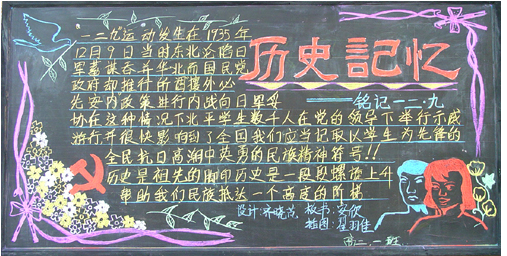 历史記忆
——铭记一二·九
一二九运动发生在1935年
12月9日当时东北沦陷日
军蓄谋吞并华北而国民党
政府却推行所谓攘外必
先安内政策进行内战向日妥
协在这种情况下北平学生数千人在党的领导下举行示威
游行并很快影响到了全国我们应当记取以学生为先锋的
全民抗日高潮中英勇的民族精神符号!!
历史是祖先的脚印历史是一段段螺旋上升
帮助我们民族抵达一个高度的阶梯
设计:齐晓 板书:安欣
插图:翟羽佳
高二.一班